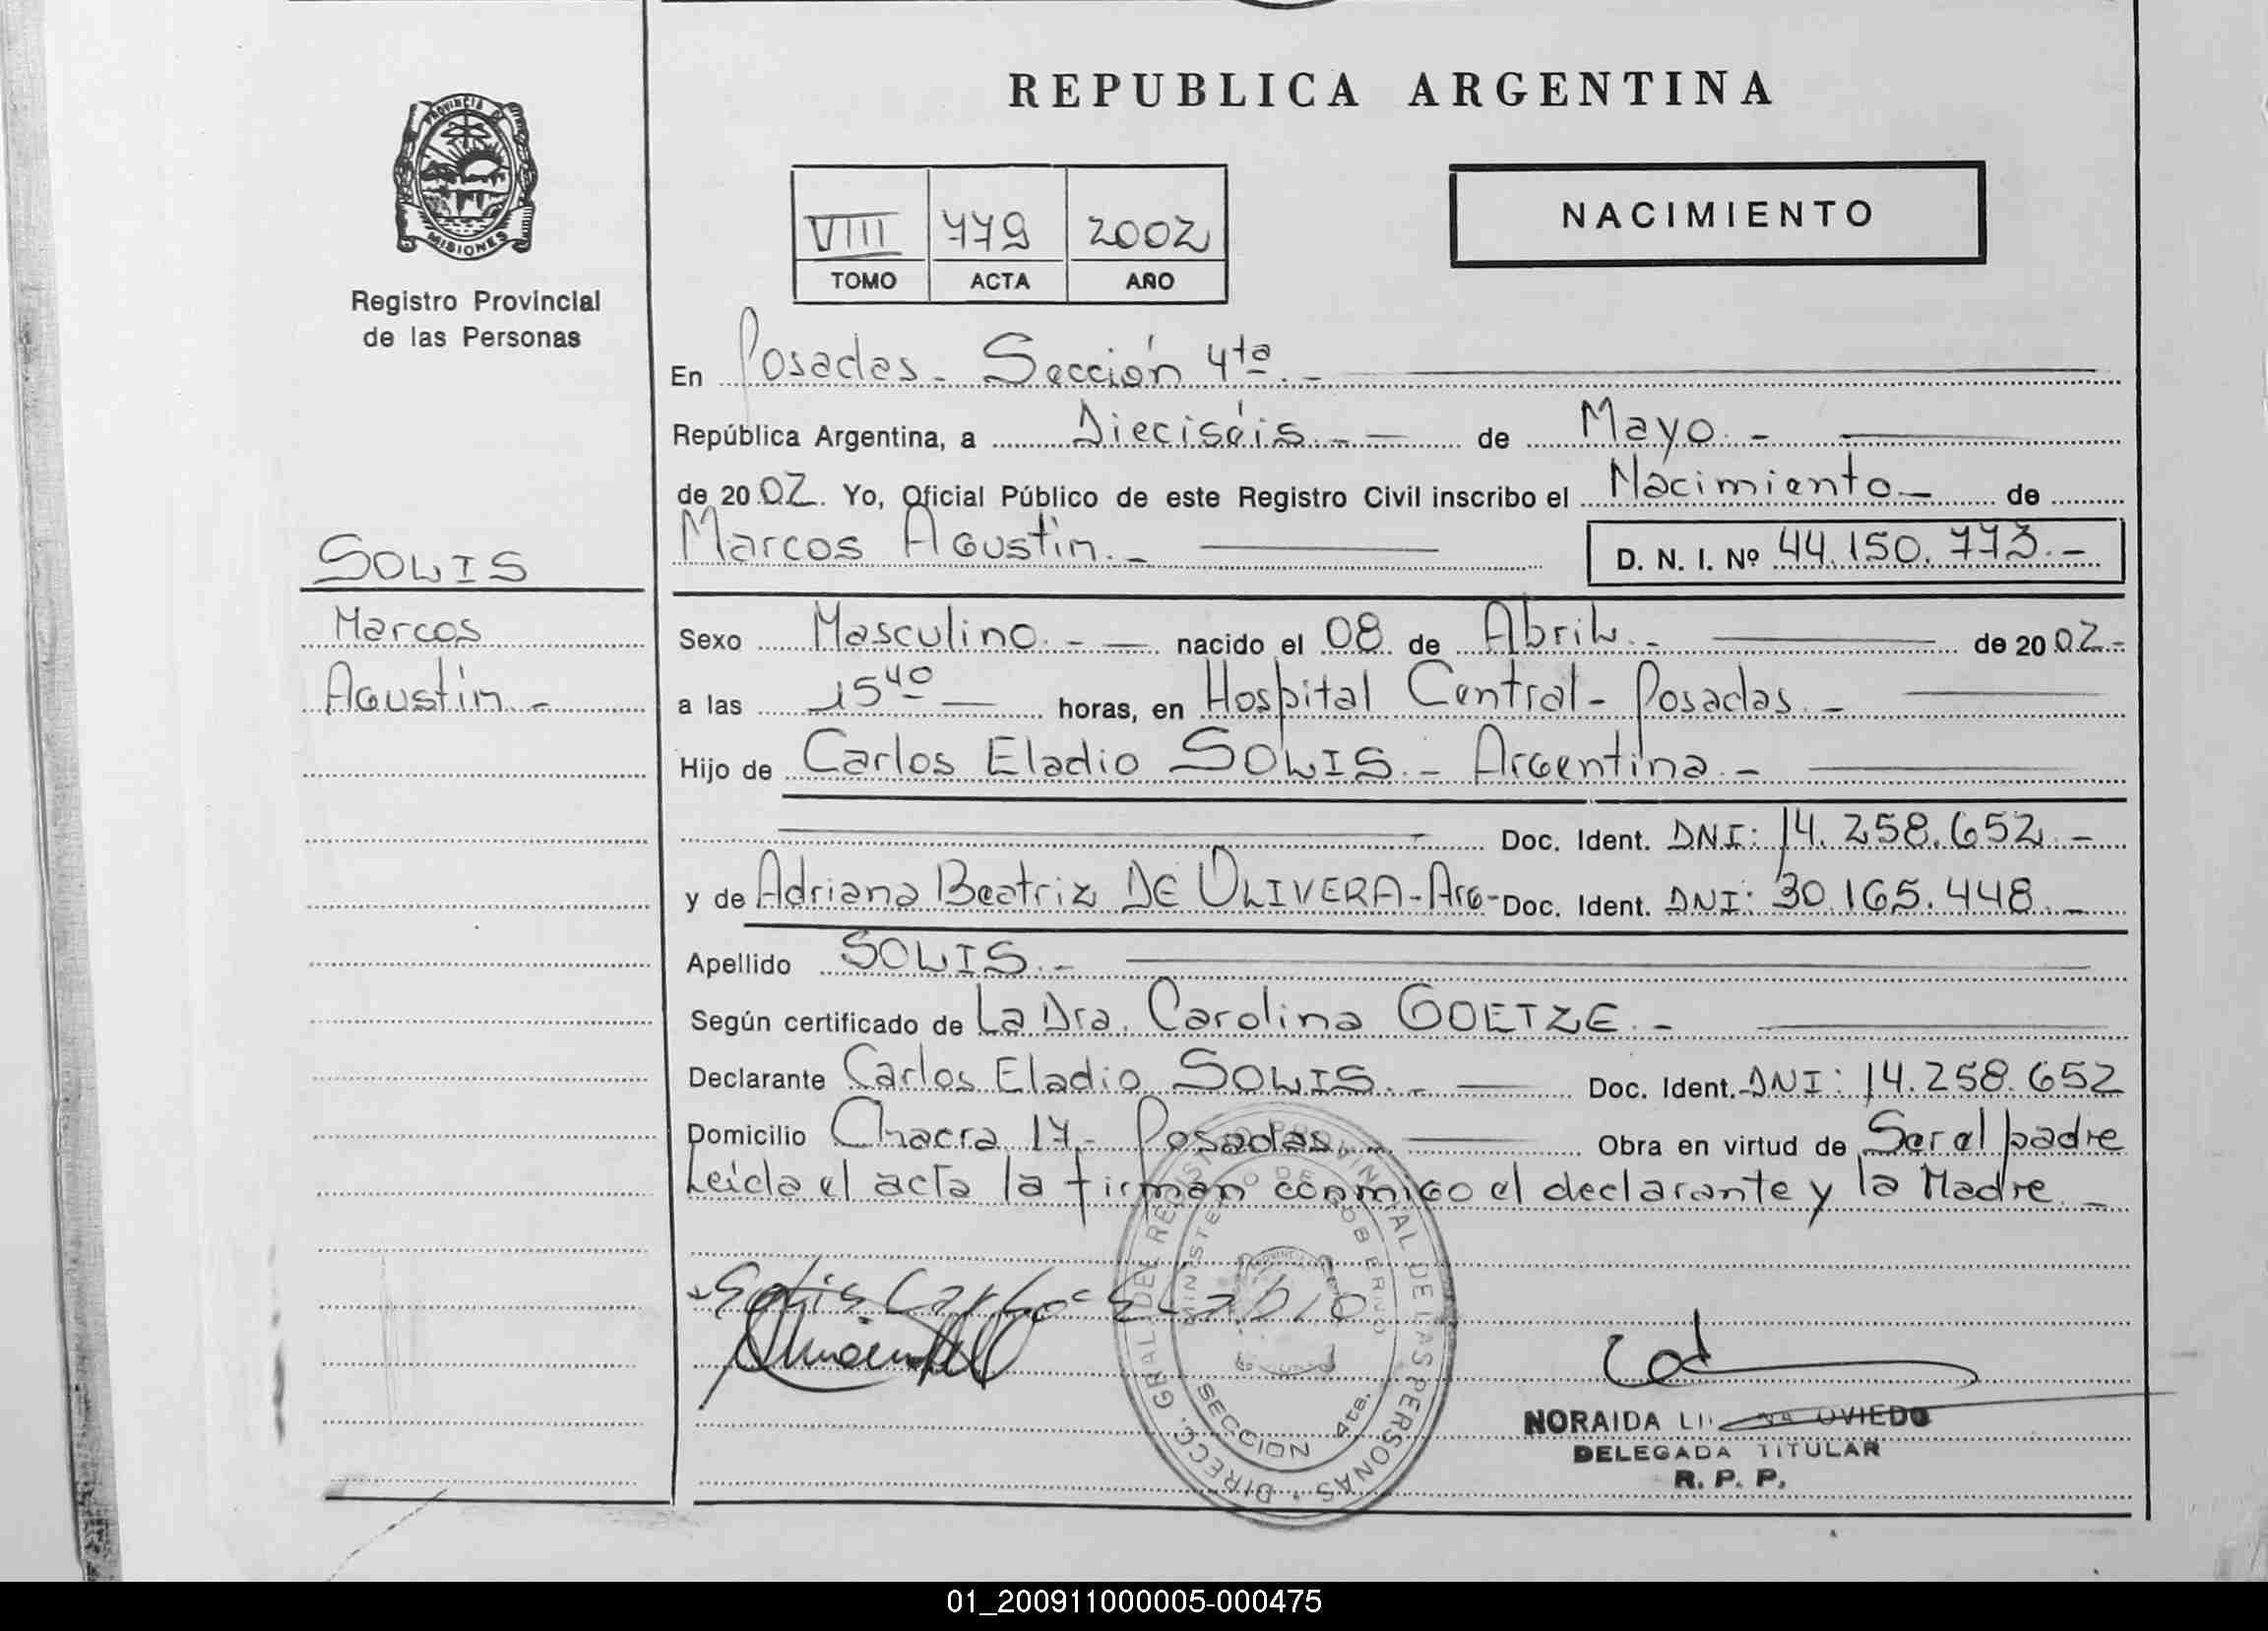 REPUBLICA ARGENTINA
PROVINCIA DE
MISIONES
Registro Provincial
de las Personas
NACIMIENTO
VIII 779 2002
TOMO ACTA AÑO
En Posadas - Sección 4ta. -
República Argentina, a Dieciséis. - de Mayo. -
de 2002. Yo, Oficial Público de este Registro Civil inscribo el Nacimiento - de
Marcos Agustín. -
D. N. I. Nº 44.150.773. -
SOLIS
Marcos
Agustín. -
Sexo Masculino. - nacido el 08 de Abril. - de 2002. -
a las 15 40 horas, en Hospital Central - Posadas. -
Hijo de Carlos Eladio SOLIS. - Argentina. -
Doc. Ident. DNI: 14.258.652. -
y de Adriana Beatriz DE OLIVERA - Arg - Doc. Ident. DNI: 30.165.448. -
Apellido SOLIS. -
Según certificado de La Dra. Carolina GOETZE. -
Declarante Carlos Eladio SOLIS. - Doc. Ident. DNI: 14.258.652
Domicilio Chacra 17 - Posadas. - Obra en virtud de Ser el padre
Leída el acta la firman conmigo el declarante y la Madre. -
Solis Carlos Eladio
DIRECC. GRAL. DEL REGISTRO PROVINCIAL DE LAS PERSONAS
MINISTERIO DE GOBIERNO
SECCION 4ta.
NORAIDA OVIEDO
DELEGADA TITULAR
R. P. P.
01_200911000005-000475